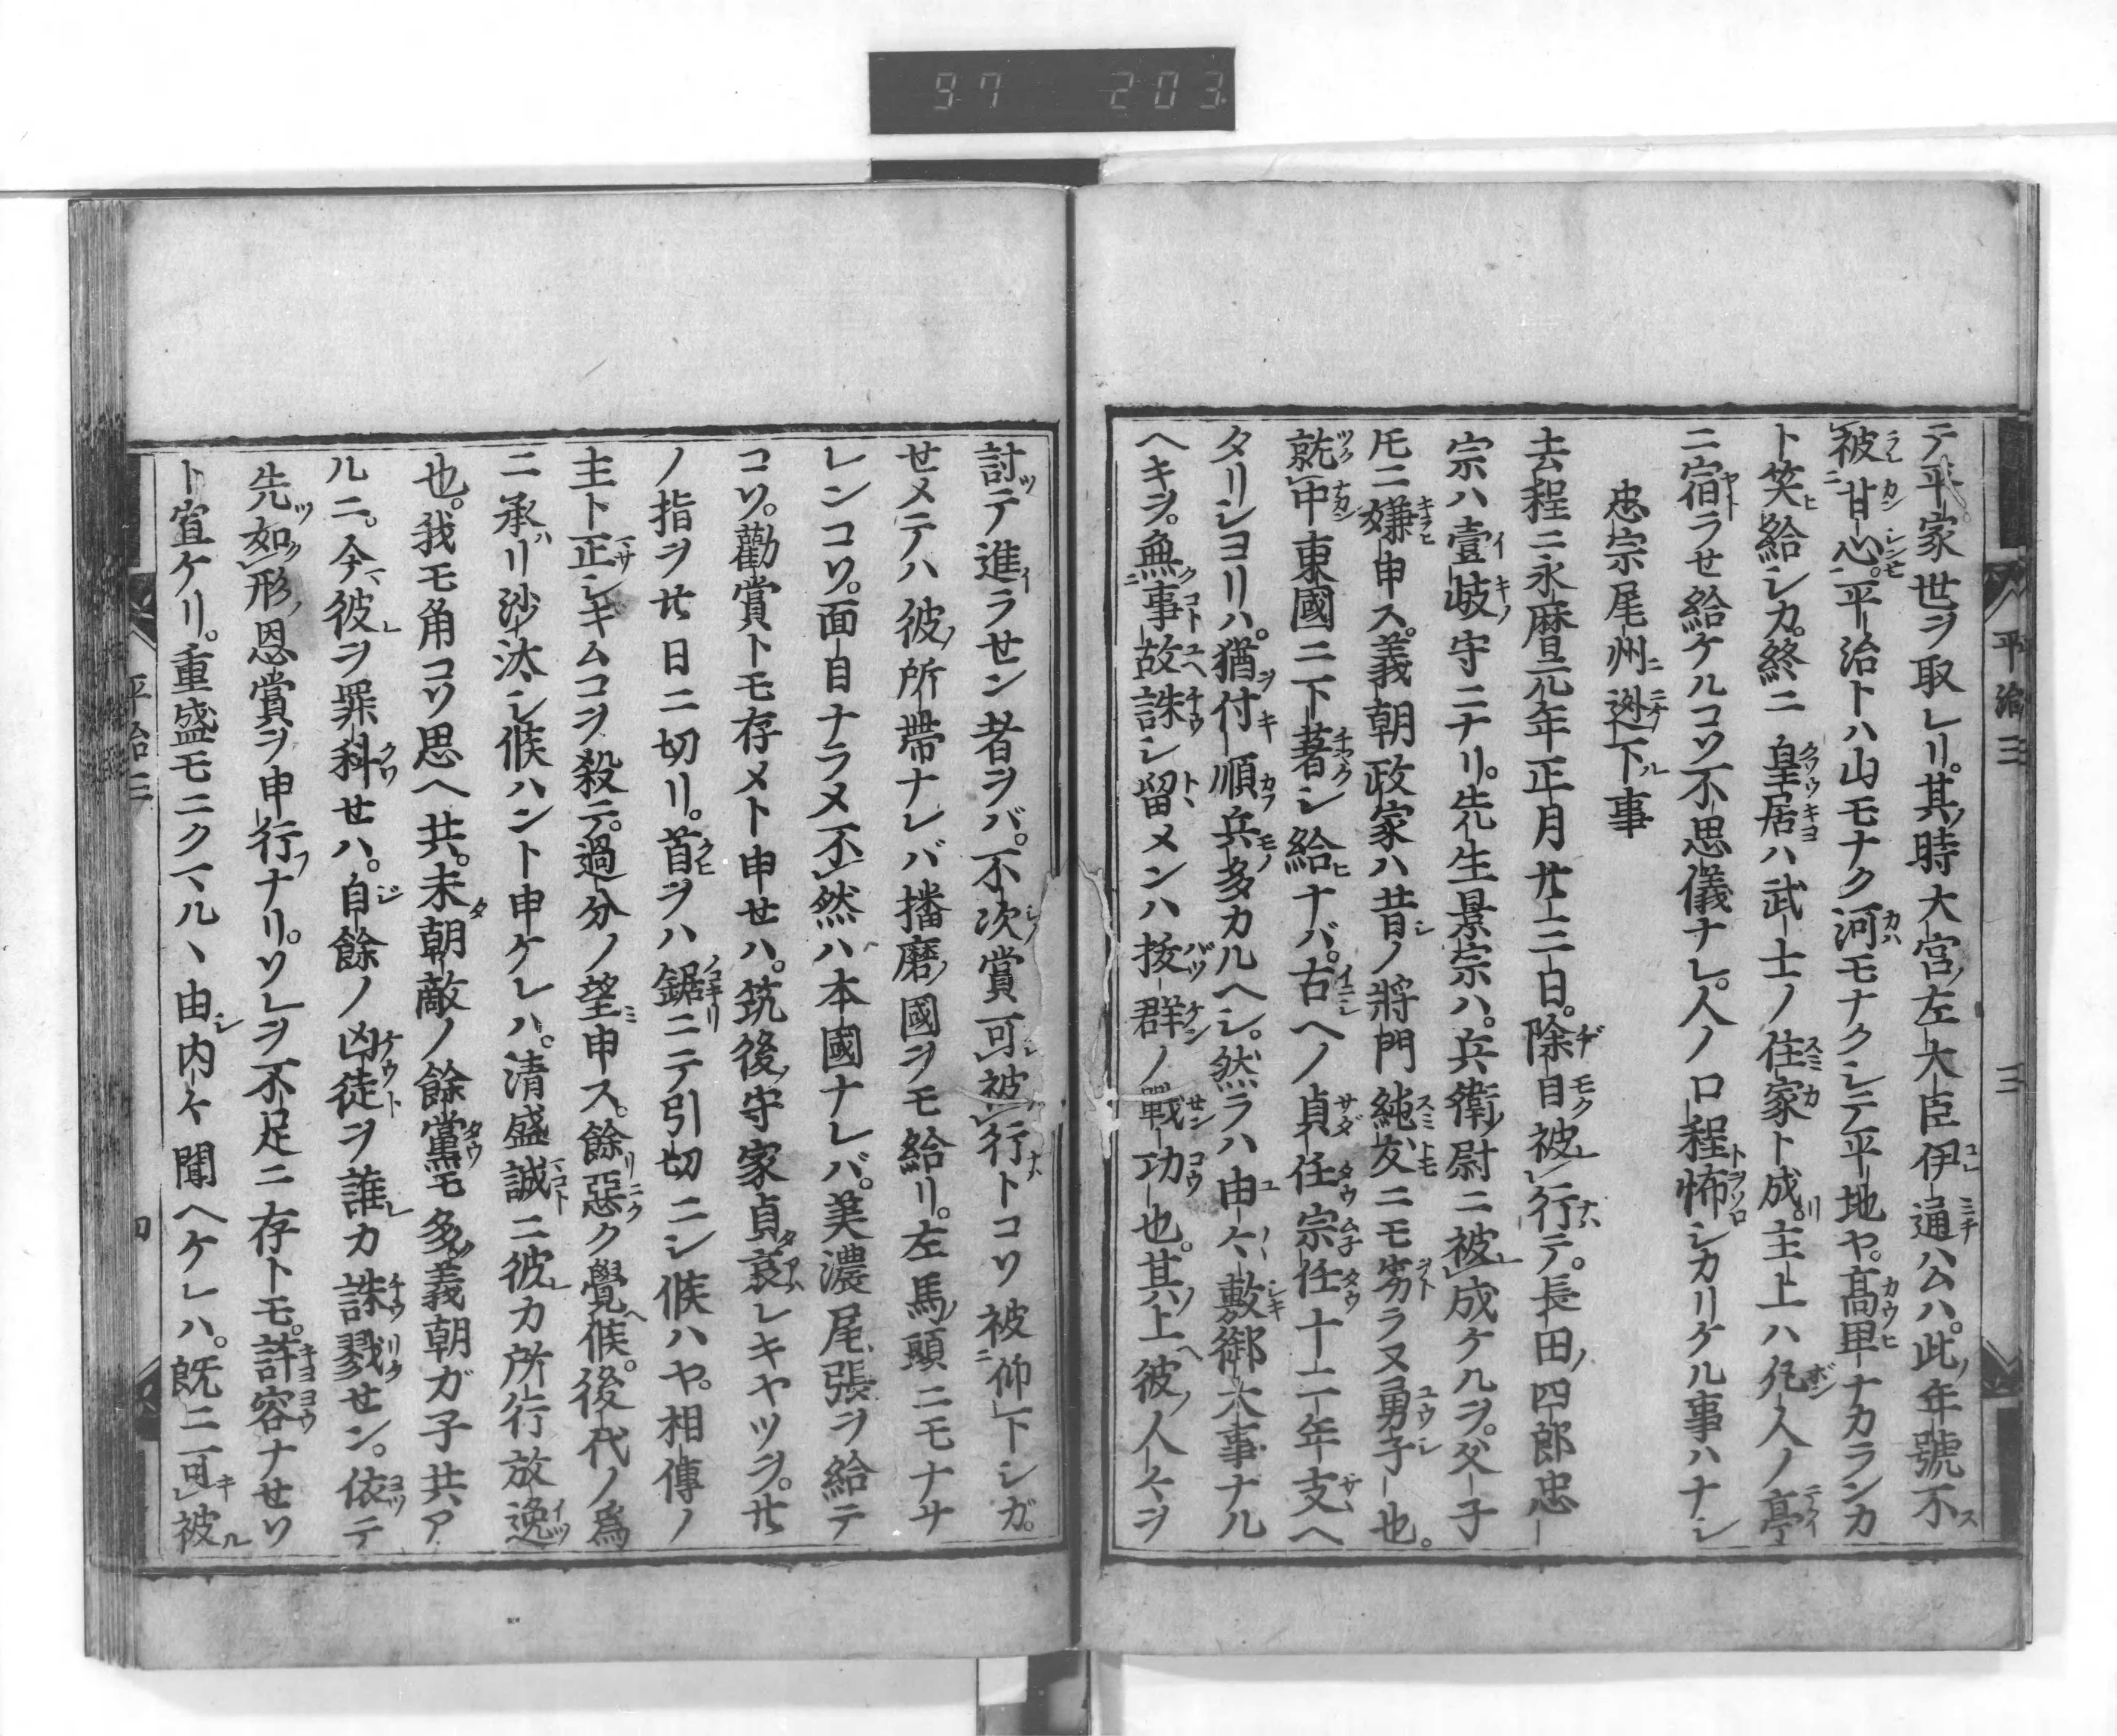 97 203
テ平家世ヲ取レリ。其時大宮左大臣伊通公ハ。此年號不
被甘心。平治トハ山モナク河モナクシテ平地ヤ。髙卑ナカランカ
ト笑給シカ。終ニ皇居ハ武士ノ住家ト成。主上ハ凡人ノ亭
ニ宿ラせ給ケルコソ不思儀ナレ。人ノ口程怖シカリケル事ハナシ
忠宗尾州迯下事
去程ニ永暦元年正月廿三日。除目被行テ。長田四郎忠
宗ハ壹岐守ニナリ。先生景宗ハ。兵衛尉ニ被成ケルヲ。父子
圧ニ嫌申ス。義朝政家ハ昔ノ將門純友ニモ劣ラヌ勇子也。
就中東國ニ下著シ給ナバ。古ヘノ貞任宗任十二年支ヘ
タリシヨリハ。猶付順兵多カルヘシ。然ラハ由々敷御大事ナル
ヘキヲ。無事故誅シ留メンハ拔群ノ戰功也。其上彼人々ヲ
平治三 三
討テ進ラせン者ヲバ。不次賞可被行トコソ被仰下シガ。
せメテハ彼所帶ナレバ播磨國ヲモ給リ。左馬頭ニモナサ
レンコソ。面目ナラメ不然ハ本國ナレバ。美濃尾張ヲ給テ
コソ。勸賞トモ存メト申せハ。筑後守家貞哀レキヤツヲ。廿
ノ指ヲ廿日ニ切リ。首ヲハ鋸ニテ引切ニシ候ハヤ。相傳ノ
主ト正シキムコヲ殺テ。過分ノ望申ス。餘惡ク覺候。後代ノ爲
ニ承リ沙汰シ候ハント申ケレハ。清盛誠ニ彼カ所行放逸
也。我モ角コソ思ヘ共。未朝敵ノ餘黨モ多。義朝ガ子共ア
ルニ。今彼ヲ罪科せハ。自餘ノ凶徒ヲ誰カ誅戮せン。依テ
先如形恩賞ヲ申行ナリ。ソレヲ不足ニ存トモ。許容ナせソ
ト宣ケリ。重盛モニクマルヽ由内々聞ヘケレハ。既ニ可被
平治三 四